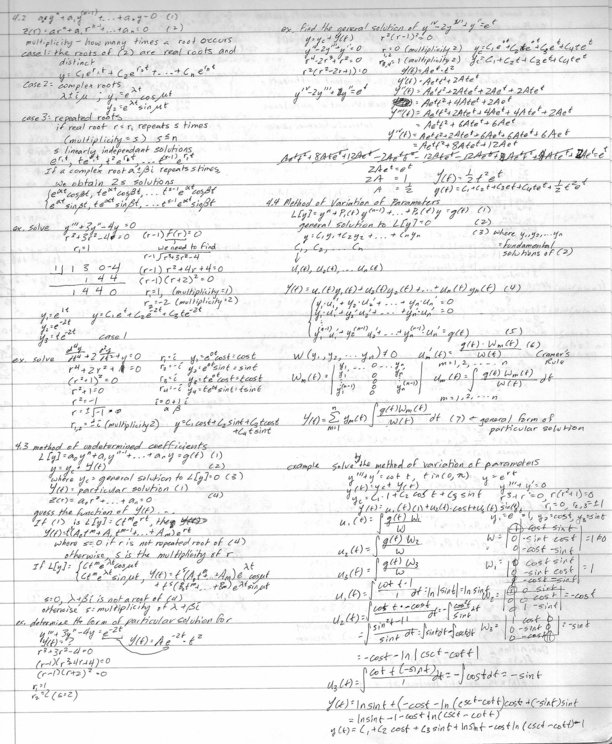 4.2 a₀yⁿ + a₁y⁽ⁿ⁻¹⁾ + ... + aₙy = 0 (1)
Z(r) = arⁿ + a₁rⁿ⁻¹ + ... aₙ = 0 (2)
multiplicity - how many times a root occurs
case 1: the roots of (2) are real roots and
distinct
y = C₁e^{r₁t} + C₂e^{r₂t} + ... + Cₙe^{rₙt}
case 2: complex roots
λ ± iμ, y₁ = e^{λt}cosμt
y₂ = e^{λt}sinμt
case 3: repeated roots
if real root r = r₁ repeats s times
(multiplicity = s) s ≤ n
s linearly independent solutions
e^{r₁t}, te^{r₁t}, t²e^{r₁t}, ... t^{(s-1)}e^{r₁t}
If a complex root α ± βi repeats s times,
we obtain 2s solutions
{e^{αt}cosβt, te^{αt}cosβt, ... t^{s-1}e^{αt}cosβt
{e^{αt}sinβt, te^{αt}sinβt, ... t^{s-1}e^{αt}sinβt
ex. solve y''' + 3y'' - 4y = 0
r³ + 3r² - 4 = 0 (r-1)f(r) = 0
r₁ = 1 we need to find
r-1 √r³+3r²-4
1 | 1 3 0 -4 (r-1)r²+4r+4=0
1 4 4 (r-1)(r+2)² = 0
1 4 4 0 r₁ = 1, (multiplicity = 1)
r₂ = -2 (multiplicity = 2)
y₁ = e^{t}
y₂ = e^{-2t} y = C₁e^{t} + C₂e^{-2t} + C₃te^{-2t}
y₃ = te^{-2t} case 1
ex. solve d⁴y/dt⁴ + 2 d²y/dt² + y = 0
r⁴ + 2r² + 1 = 0
(r²+1)² = 0
r²+1 = 0
r² = -1
r = ±√-1
r₁,₂ = ±i (multiplicity 2)
r₁ = i y₁ = e^{0t}cost = cost
r₂ = -i y₂ = e^{0t}sint = sint
r₃ = i y₃ = te^{0t}cost = tcost
r₄ = -i y₄ = te^{0t}sint = tsint
i = 0 + 1i
α β
y = C₁cost + C₂sint + C₃tcost
+ C₄tsint
4.3 method of undetermined coefficients
L[y] = a₀yⁿ + a₁yⁿ⁻¹ + ... + aₙy = g(t) (1)
y = y_c + Y(t) (2)
where y_c = general solution to L[y] = 0 (3)
Y(t) = particular solution (1)
Z(r) = a₀rⁿ + ... + aₙ = 0 (4)
guess the function of Y(t) ...
If (1) is L[y] = Ct^{m}e^{rt}, then
Y(t) = (A₀t^{m} + A₁t^{m-1} + ... + Aₘ)e^{rt}
where s=0 if r is not repeated root of (4)
otherwise, s is the multiplicity of r
If L[y] = {Ct^{m}e^{λt}cosμt
{Ct^{m}e^{λt}sinμt, Y(t) = t^{s}(A₀t^{m} + ... Aₘ)e^{λt}cosμt
+ t^{s}(B₀t^{m} + ... + Bₘ)e^{λt}sinμt
s=0, λ+βi is not a root of (4)
otherwise s = multiplicity of λ+βi
ex. determine the form of particular solution for
y''' + 3y'' - 4y = e^{-2t}
Y(t) = ? Y(t) = Ae^{-2t}·t²
r³ + 3r² - 4 = 0
(r-1)(r²+4r+4) = 0
(r-1)(r+2)² = 0
r₁ = 1
r₂ = 2 (s=2)
ex. find the general solution of y⁗ - 2y''' + y'' = e^{t}
y = y_c + Y(t)
y⁗ - 2y''' + y'' = 0
r⁴ - 2r³ + r² = 0
r²(r²-2r+1) = 0
r²(r-1)² = 0
r₁ = 0 (multiplicity 2)
r₃,₄ = 1 (multiplicity 2)
y = C₁e^{0t} + C₂te^{0t} + C₃e^{t} + C₄te^{t}
y = C₁ + C₂t + C₃e^{t} + C₄te^{t}
Y(t) = Ae^{t}·t²
Y'(t) = Ae^{t}t² + 2Ate^{t}
Y''(t) = Ae^{t}t² + 2Ate^{t} + 2Ate^{t} + 2Ae^{t}
= Ae^{t}t² + 4Ate^{t} + 2Ae^{t}
Y'''(t) = Ae^{t}t² + 2Ate^{t} + 4Ate^{t} + 4Ae^{t} + 2Ae^{t}
= Ae^{t}t² + 6Ate^{t} + 6Ae^{t}
Y⁗(t) = Ae^{t}t² + 2Ate^{t} + 6Ate^{t} + 6Ae^{t} + 6Ae^{t}
= Ae^{t}t² + 8Ate^{t} + 12Ae^{t}
2Ae^{t} = e^{t}
2A = 1 Y(t) = ½t²e^{t}
A = ½ y(t) = C₁ + C₂t + C₃e^{t} + C₄te^{t} + ½t²e^{t}
4.4 Method of Variation of Parameters
L[y] = yⁿ + P₁(t)y⁽ⁿ⁻¹⁾ + ... + Pₙ(t)y = g(t) (1)
general solution to L[y] = 0 (2)
y = C₁y₁ + C₂y₂ + ... + Cₙyₙ (3) where y₁, y₂, ... yₙ
C₁, C₂, ... Cₙ = fundamental
solutions of (2)
u₁(t), u₂(t), ... uₙ(t)
Y(t) = u₁(t)y₁(t) + u₂(t)y₂(t) + ... + uₙ(t)yₙ(t) (4)
{y₁u₁' + y₂u₂' + ... + yₙuₙ' = 0
{y₁'u₁' + y₂'u₂' + ... yₙ'uₙ' = 0
{y₁⁽ⁿ⁻¹⁾u₁' + ... + yₙ⁽ⁿ⁻¹⁾uₙ' = g(t) (5)
W(y₁, y₂, ... yₙ) ≠ 0 uₘ'(t) = g(t)·Wₘ(t) / W(t) (6)
m = 1, 2, ... n Cramer's
Rule
uₘ(t) = ∫ g(t)Wₘ(t) / W(t) dt
m = 1, 2, ... n
Y(t) = Σ yₘ(t) ∫ g(t)Wₘ(t) / W(t) dt (7) ← general form of
particular solution
example solve by the method of variation of parameters
y''' + y' = cot t, t in (0, π) y = e^{rt}
y(t) = y_c(t) + Y(t) y''' + y' = 0
y_c = C₁·1 + C₂cost + C₃sint r³ + r = 0, r(r²+1) = 0
Y(t) = u₁(t)(1) + u₂(t)·cost + u₃(t)sint
u₁(t) = ∫ g(t)W₁ / W
u₂(t) = ∫ g(t)W₂ / W
u₃(t) = ∫ g(t)W₃ / W
u₁(t) = ∫ cot t·1 / 1 dt = ln|sint| = ln sint
= -cost - ln|csct - cott|
u₃(t) = ∫ cot t(-sint) / 1 dt = -∫costdt = -sint
Y(t) = lnsint + (-cost - ln(csct - cott)cost + (-sint)sint
= lnsint - 1 - costln(csct - cott)
y(t) = C₁ + C₂cost + C₃sint + lnsint - costln(csct - cott) - 1